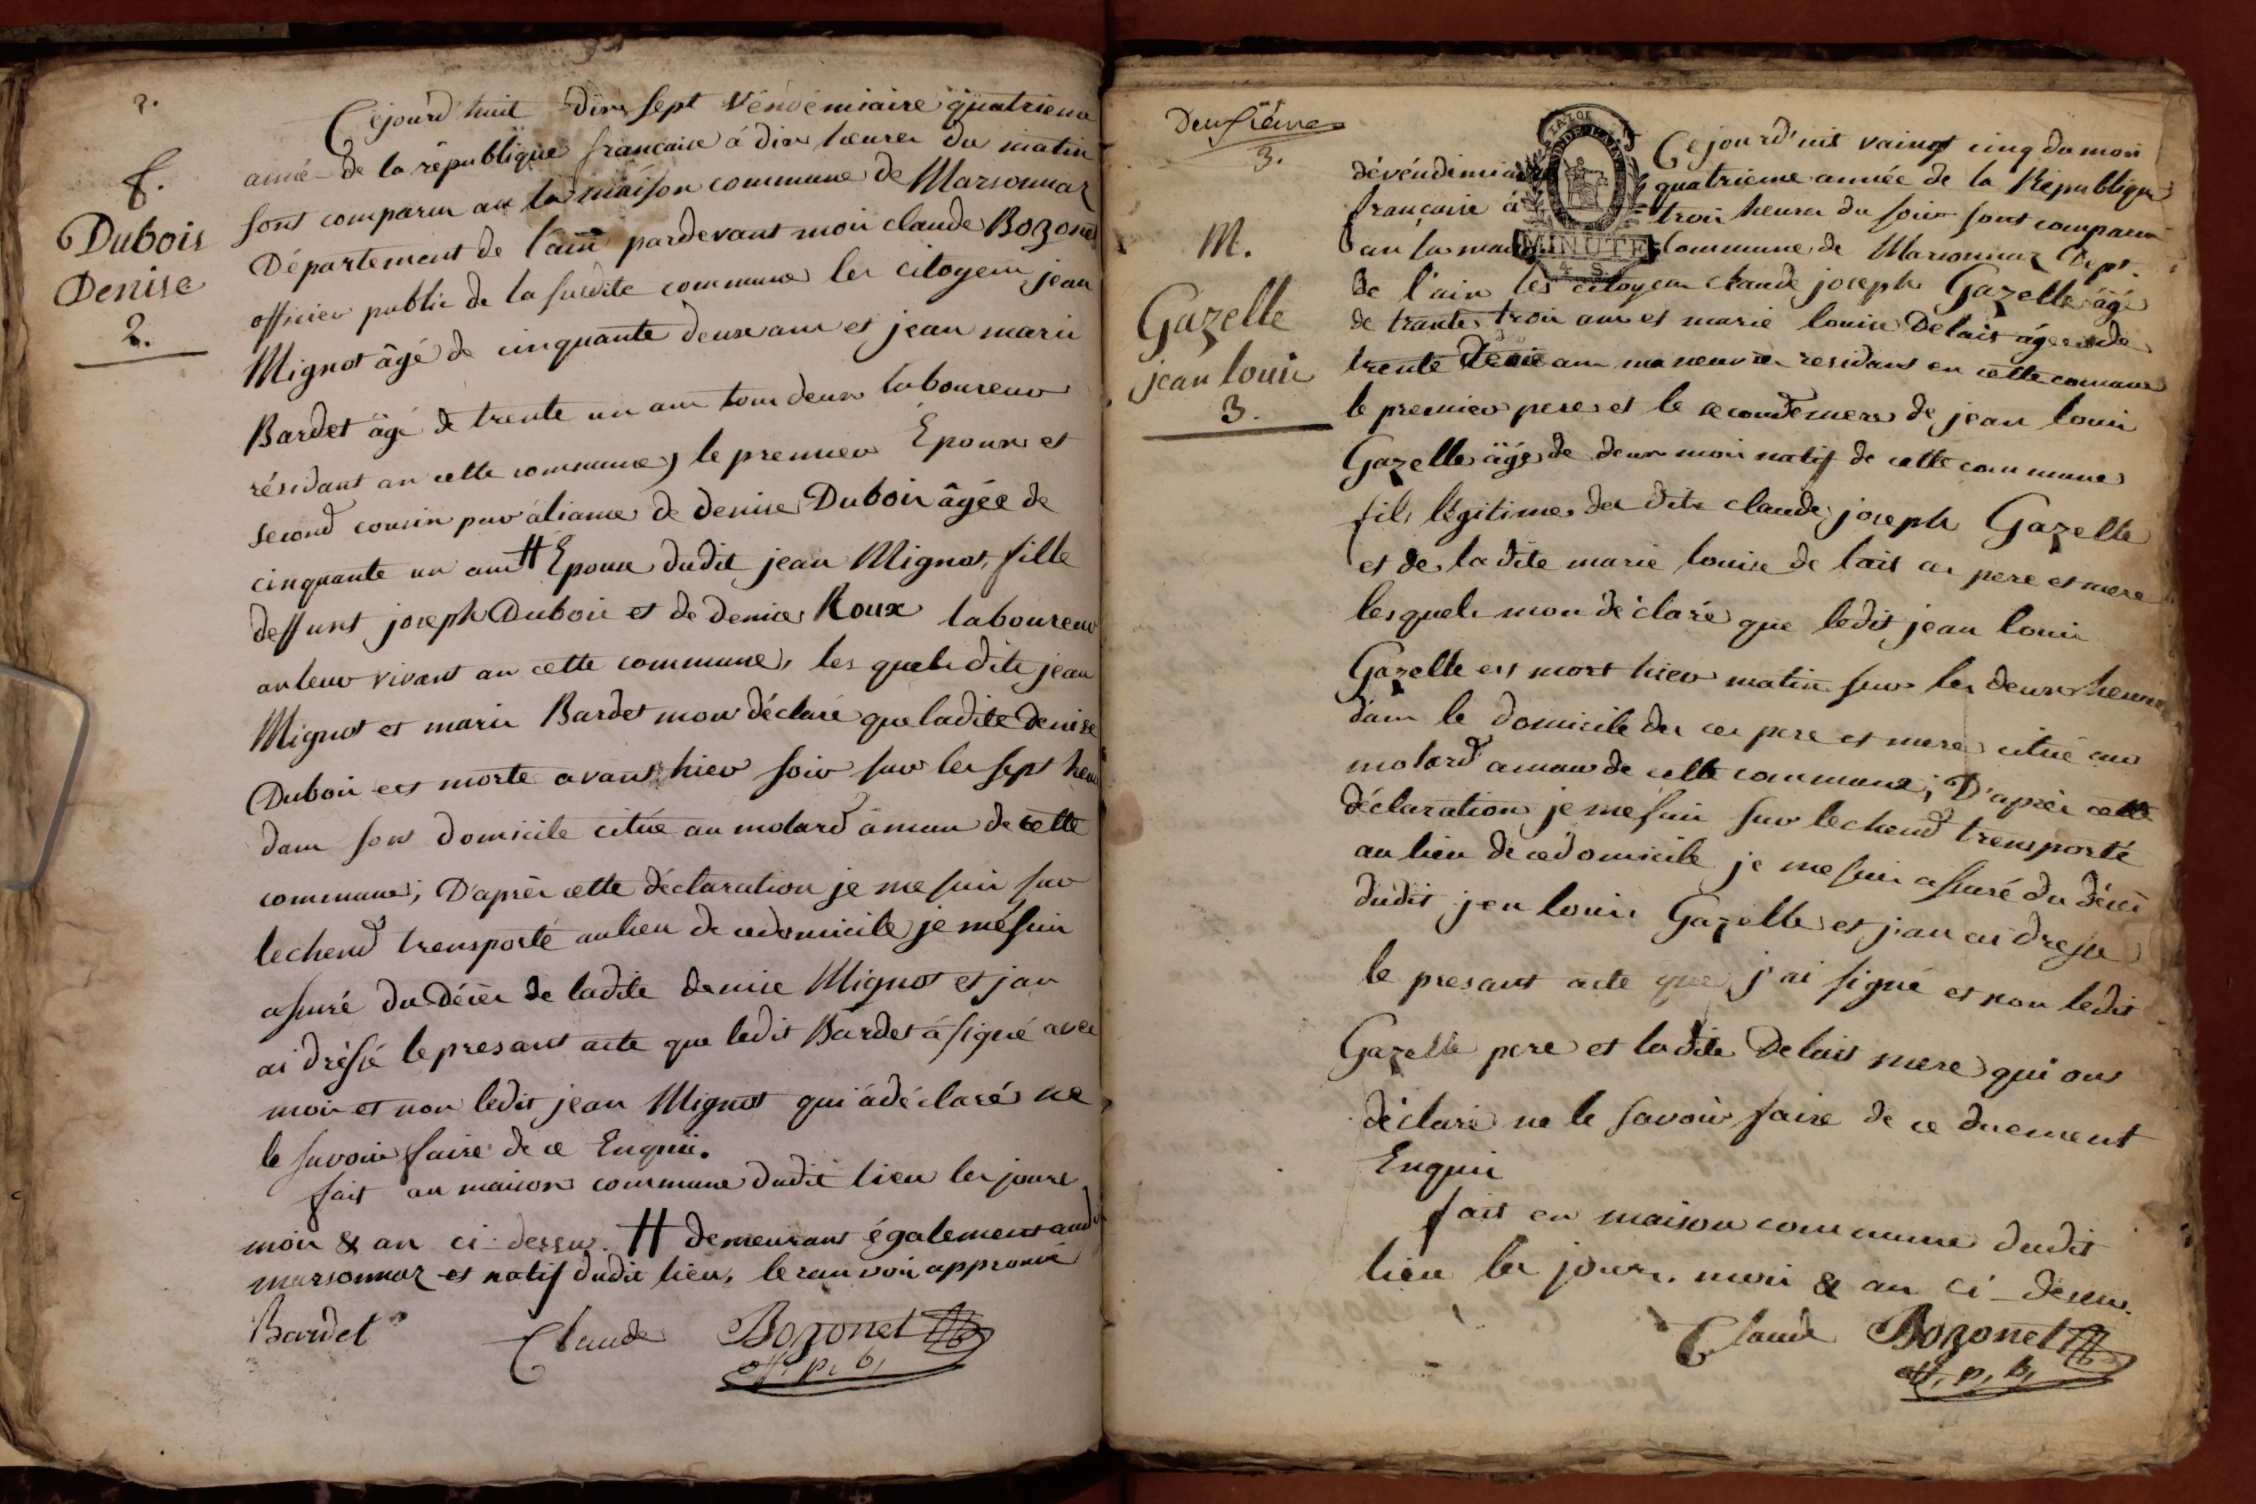 2.
f.
Dubois
Denise
2.
Cejourd'huit dix sept vendémiaire quatrieme
année de la république française à dix heures du matin
sont comparus au la maison commune de Marsonnaz
Département de l'ain pardevant moi claude Bozonet
officier public de la susdite commune les citoyens jean
Mignot âgé de cinquante deux ans et jean marie
Bardet âgé de trente un ans tous deux laboureur
résidant an cette commune, le premier Epoux et
second cousin par aliance de denise Dubois âgée de
cinquante un ans # Epouse dudit jean Mignot, fille
deffunt joseph Dubois et de denise Roux laboureur
an leur vivant an cette commune, les quels dits jean
Mignot et marie Bardet mon déclaré que ladite denise
Dubois est morte avant hier soir sur les sept heu
dans son domicile citué au molard aman de cette
commune; D'après cette déclaration je me suis sur
lechend transporté au lieu de ce domicile je mésuis
assuré du Décès de ladite denise Mignot et jan
ai drèssé le presant acte que ledit Bardet à signé avec
moi et non ledit jean Mignot qui à déclaré ne
le savoir faire de ce Enquis.
fait an maison commune dudit lieu les jours
mois & an ci-dessus. # demeurant également aud
marsonnaz et natif dudit lieu, le ranvoi approuvé
Bardet Claude Bozonet
off. p. b,
Deuxième
3.
M.
Gazelle
jean louis
3.
MINUTE
4 S
Cejourd'uit vaingt cinq du mois
dévéndimiaire quatrieme année de la République
française à trois heures du soir sont comparu
an la maison Commune de Marsonnaz Dept.
de l'ain les citoyens claude joseph Gazelle âgé
de trante trois ans et marie louise Delait âgée de
trente trois ans maneuvrer residant en cette comune
le premier pere et le seconde mere de jean louis
Gazelle âgé de deux mois natif de cette commune
fils légitime des dits claude joseph Gazelle
et de la dite marie louise de lait ces pere et mere
lesquels mon déclaré que ledit jean louis
Gazelle est mort hier matin sur les deux heures
dans le domicile des ces pere et mere citué au
molard aman de cette commune; D'après cette
déclaration je me suis sur lechend transporté
au lieu de ce domicile je me suis assuré du décès
dudit jen louis Gazelle et j'an ai dressé
le presant acte que j'ai signé et non ledit
Gazelle pere et la dite Delait mere qui ont
déclaré ne le savoir faire de ce duement
Enquis
fait en maison commune dudit
lieu les jours, mois & an ci-dessus.
Claude Bozonet
off, p, b,